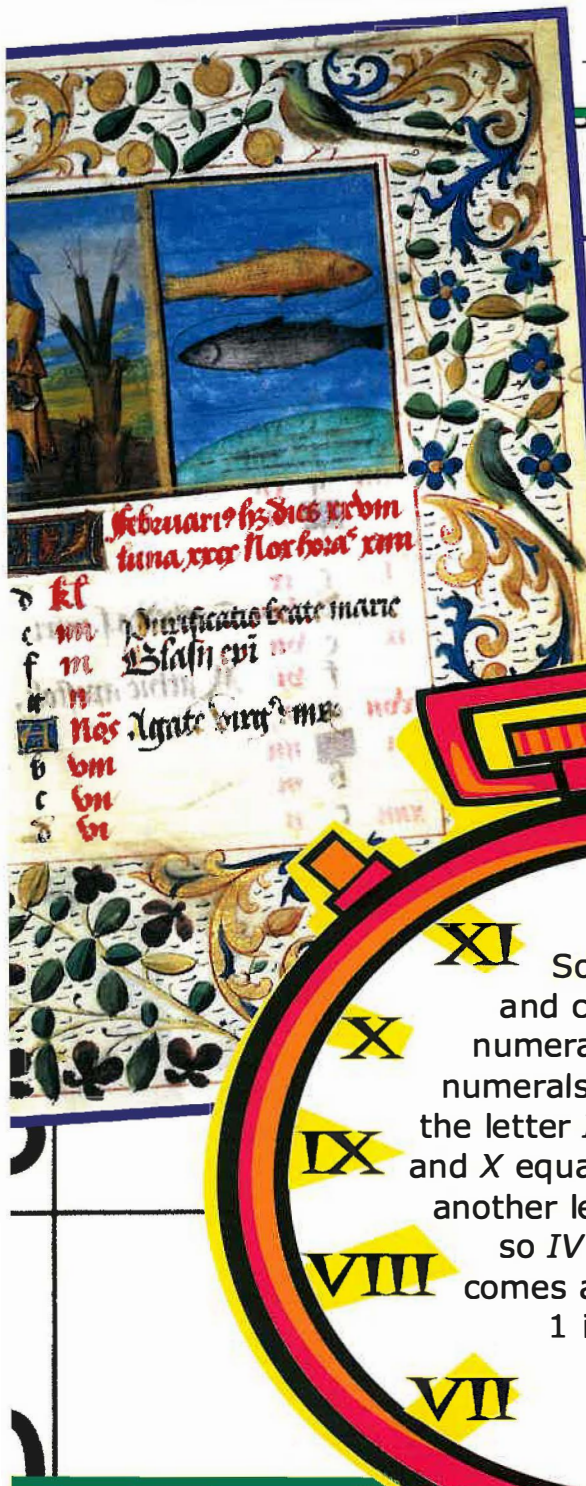 februari9 hz dies xxvm
luna xxx Nox hora xiiii
d kl
e iiii Purificatio beate marie
f iii Blasii epi
g ii
A Nōs Agate virg
b viii
c vii
d vi
XI
X
IX
VIII
VII
So
and c
numera
numerals
the letter
and X equa
another le
so IV
comes a
1 i